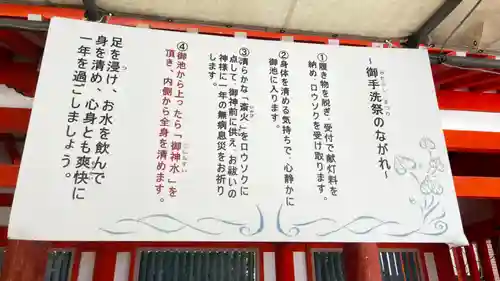 ～御手洗祭のながれ～
みたらし まつり
①履き物を脱ぎ、受付で献灯料を
納め、ロウソクを受け取ります。
②身体を清める気持ちで、心静かに
御池に入ります。
③清らかな「斎火」をロウソクに
点して、御神前に供え、お祓いの
神様に一年の無病息災をお祈り
します。
④御池から上ったら「御神水」を
ごしんすい
頂き、内側から全身を清めます。
足を浸け、お水を飲んで
身を清め、心身とも爽快に
一年を過ごしましょう。